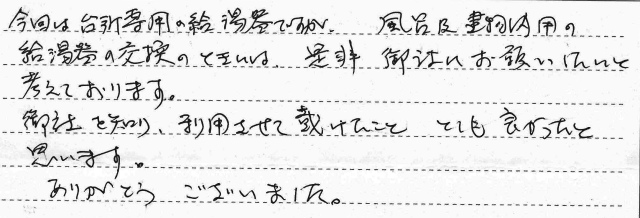 今回は台所専用の給湯器ですが、風呂及
給湯器の交換のときには、是非御社にお願いしたいと
考えております。
御社を知り、利用させて戴けたこと とても良かったと
思います。
ありがとう ございました。